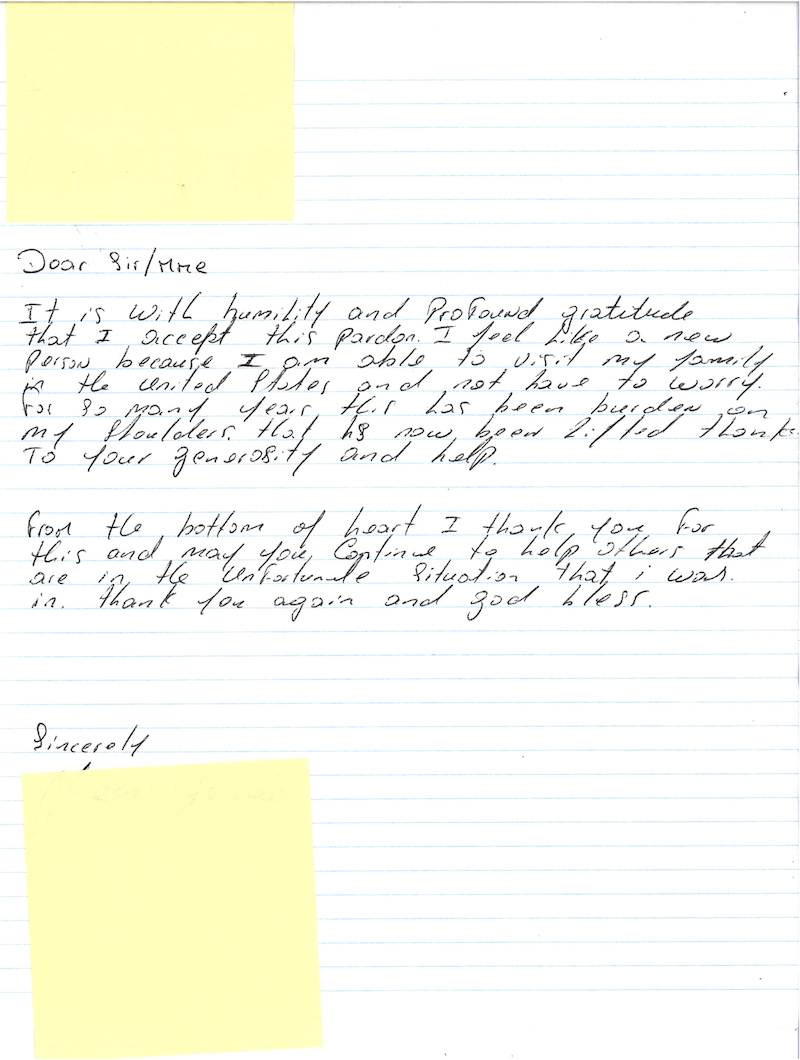 Dear Sir/Mme
It is with humility and Profound gratitude
that I accept this pardon. I feel like a new
person because I am able to visit my family
in the United States and not have to worry.
For so many years this has been burden on
my shoulders. that hs now been lifted thanks
To your generosity and help.
From the bottom of heart I thank you for
this and may you Continue to help others that
are in the Unfortunate Situation that i was.
in. thank you again and god bless.
Sincerely